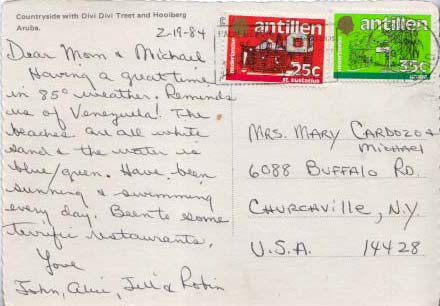 Countryside with Divi Divi Treet and Hooiberg
Aruba.
2-19-84
Dear Mom & Michael
Having a great time
in 85° weather. Reminds
us of Venezuela! The
beaches are all white
sand & the water is
blue/green. Have been
sunning & swimming
every day. Been to some
terrific restaurants.
Love
John, Alice, Jill & Robin
antillen
25c
st. eustatius
antillen
35c
MRS. MARY CARDOZO &
MICHAEL
6088 BUFFALO RD.
CHURCHVILLE, N.Y.
U.S.A. 14428